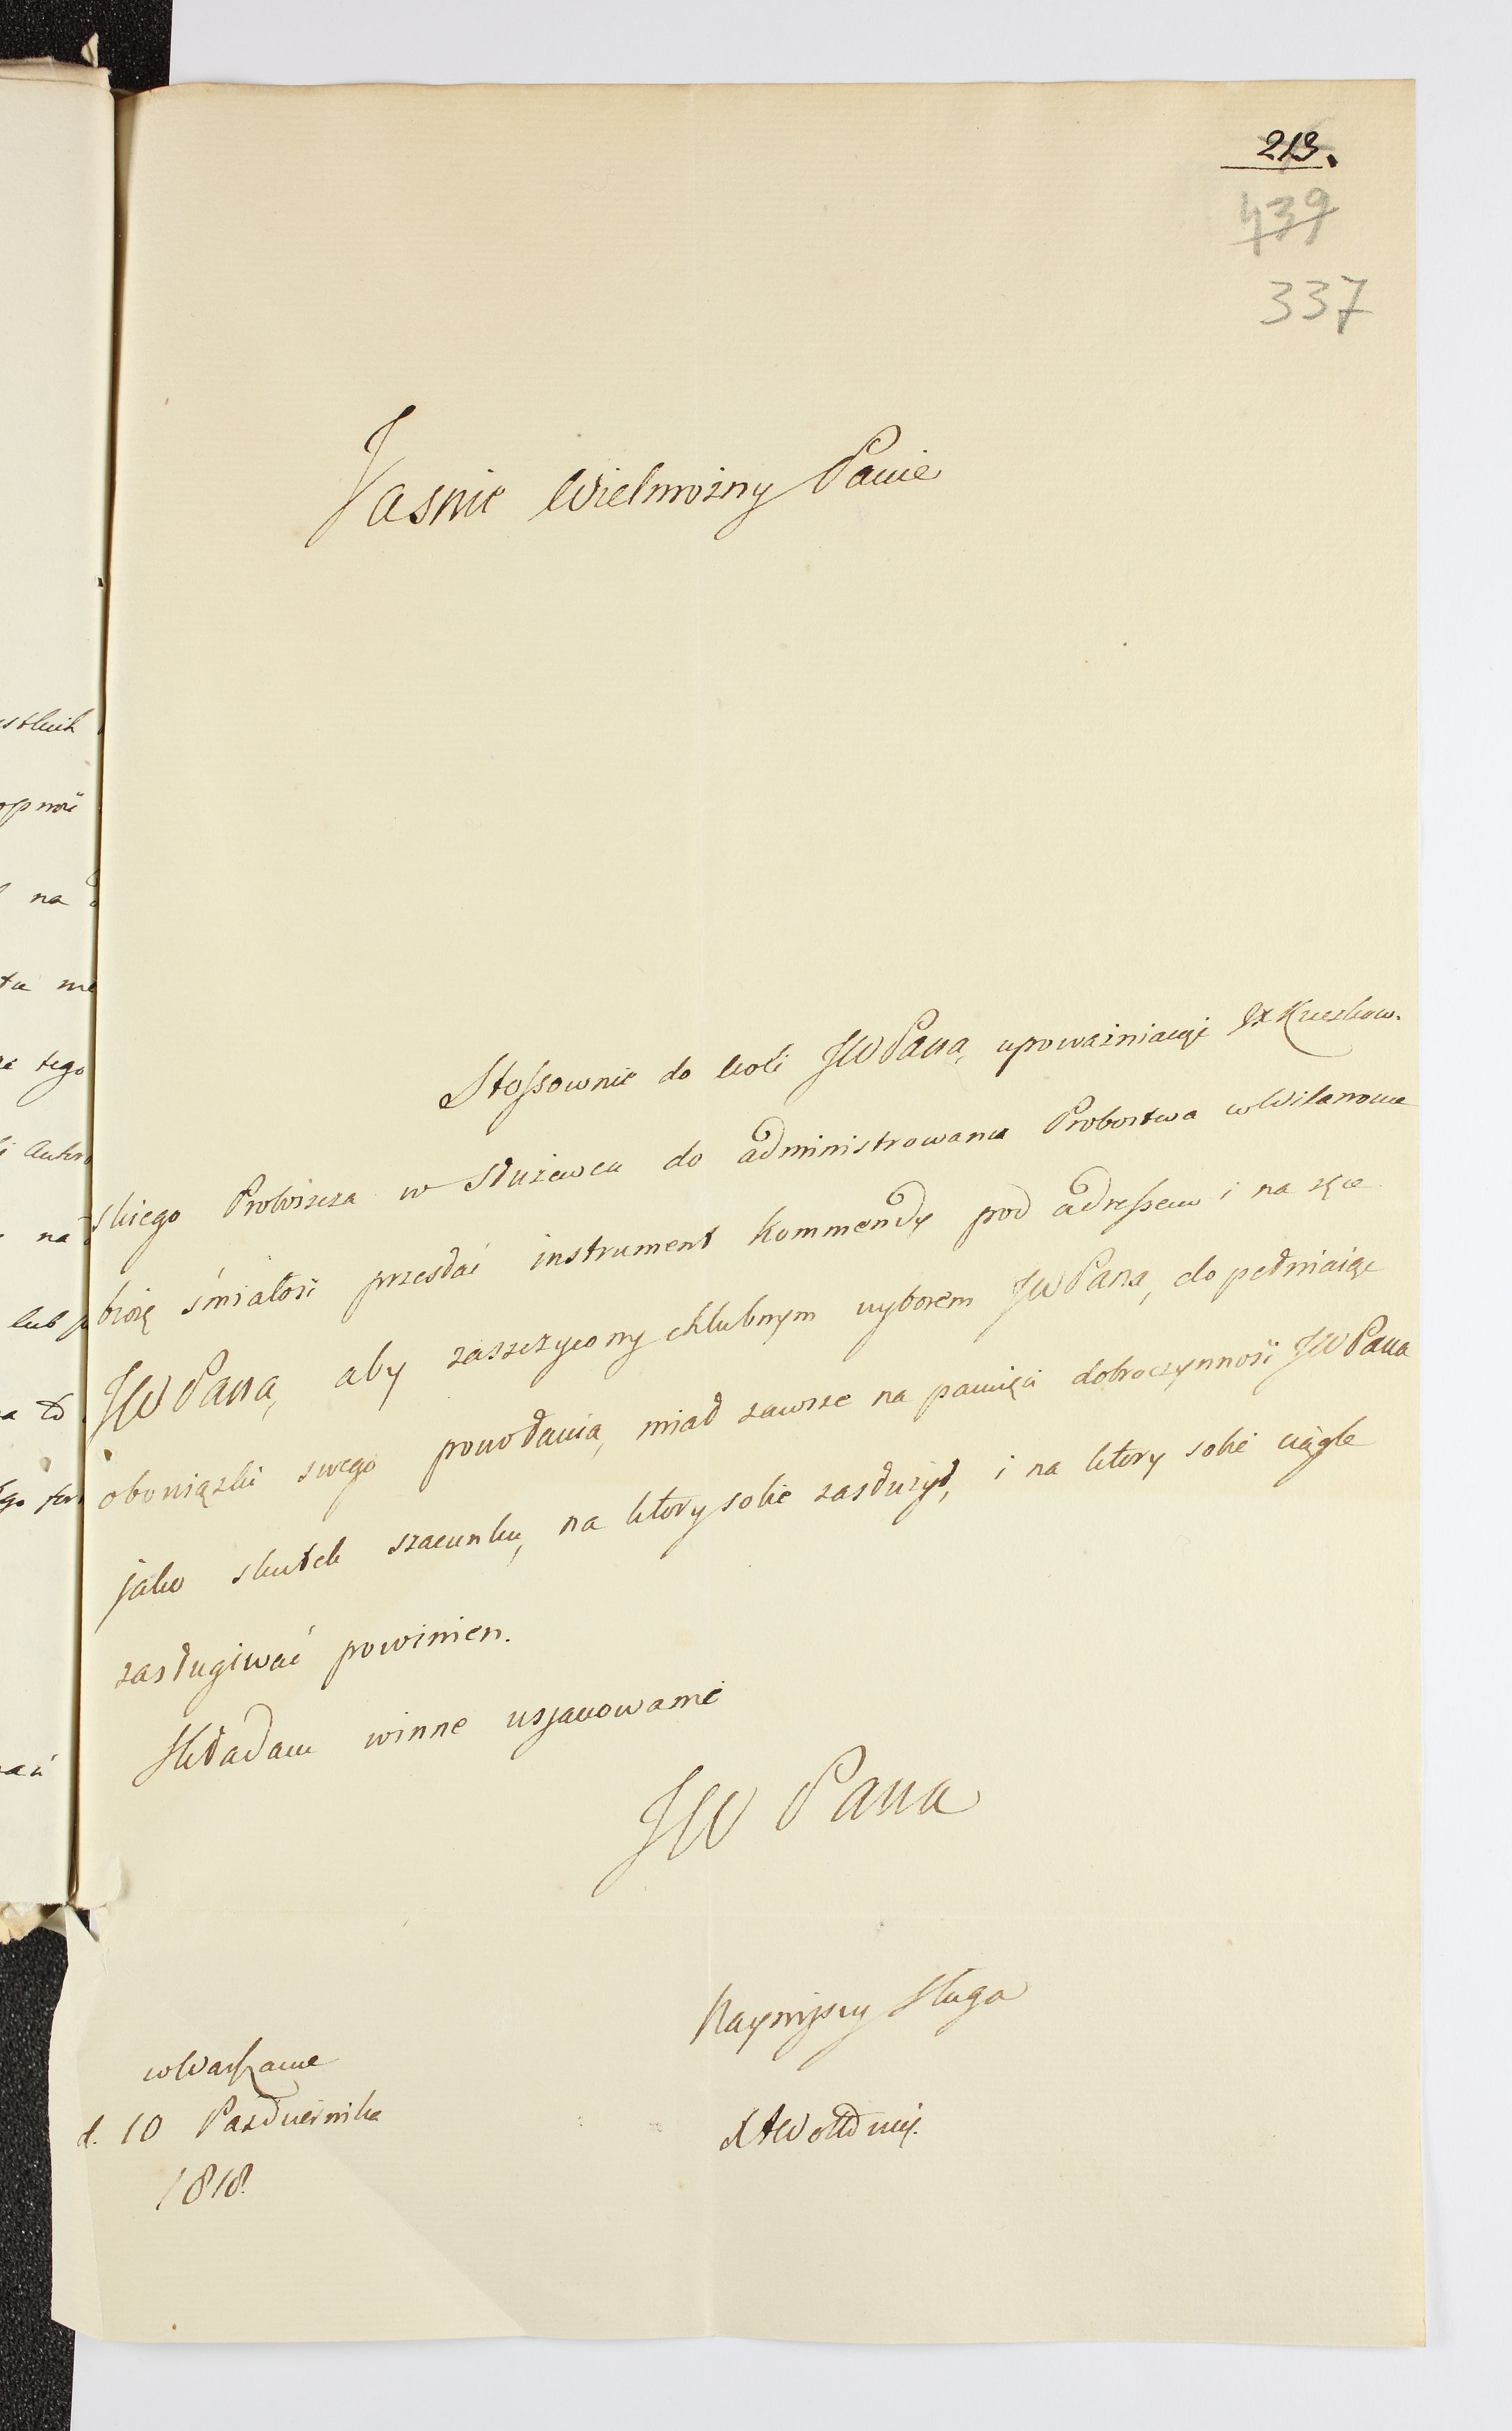 213.
439
337
Jasnie Wielmożny Panie
Stossownie do woli JWPana, upoważniaiąc
skiego Proboszcza w Służewcu do administrowania Probostwa w Wilanowie
biorę śmiałość przesłać instrument Kommendy pod adressem i na ręce
JWPana, aby zaszczycony chlubnym wyborem JWPana, dopełniaiąc
obowiązki swego powołania, miał zawsze na pamięci dobroczynność JWPana
jako skutek szacunku, na który sobie zasłużył, i na który sobie ciągle
zasługiwać powinien.
Składam winne uszanowanie
JW Pana
Nayniższy Sługa
w Warszawie
d. 10 Pazdziernika
1818.